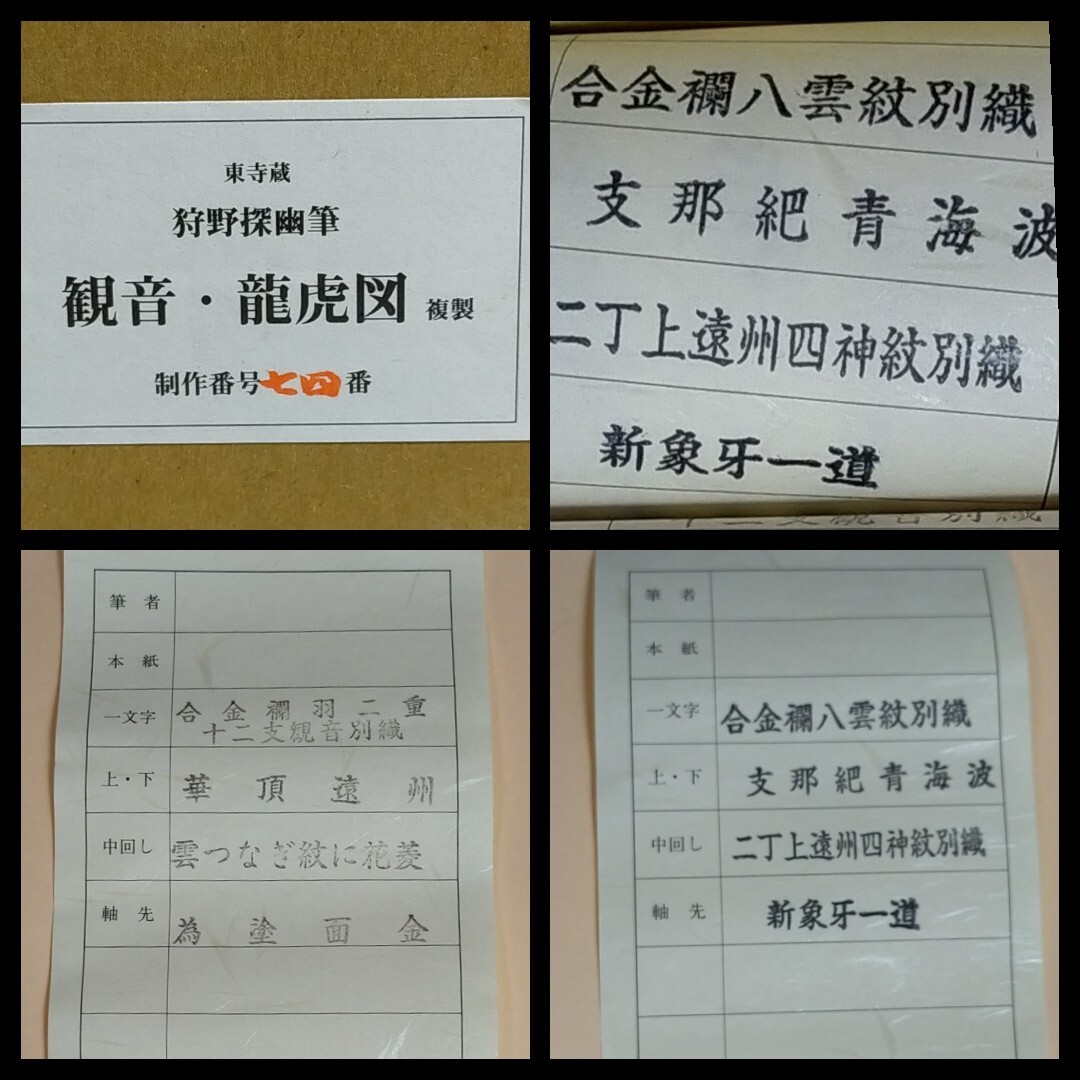 東寺蔵
狩野探幽筆
観音・龍虎図 複製
制作番号七四番
合金襴八雲紋別織
支那絽青海波
二丁上遠州四神紋別織
新象牙一道
十二支観音別織
筆者
本紙
一文字 合金襴羽二重
十二支観音別織
上・下 華頂遠州
中回し 雲つなぎ紋に花菱
軸先 為塗面金
筆者
本紙
一文字 合金襴八雲紋別織
上・下 支那絽青海波
中回し 二丁上遠州四神紋別織
軸先 新象牙一道